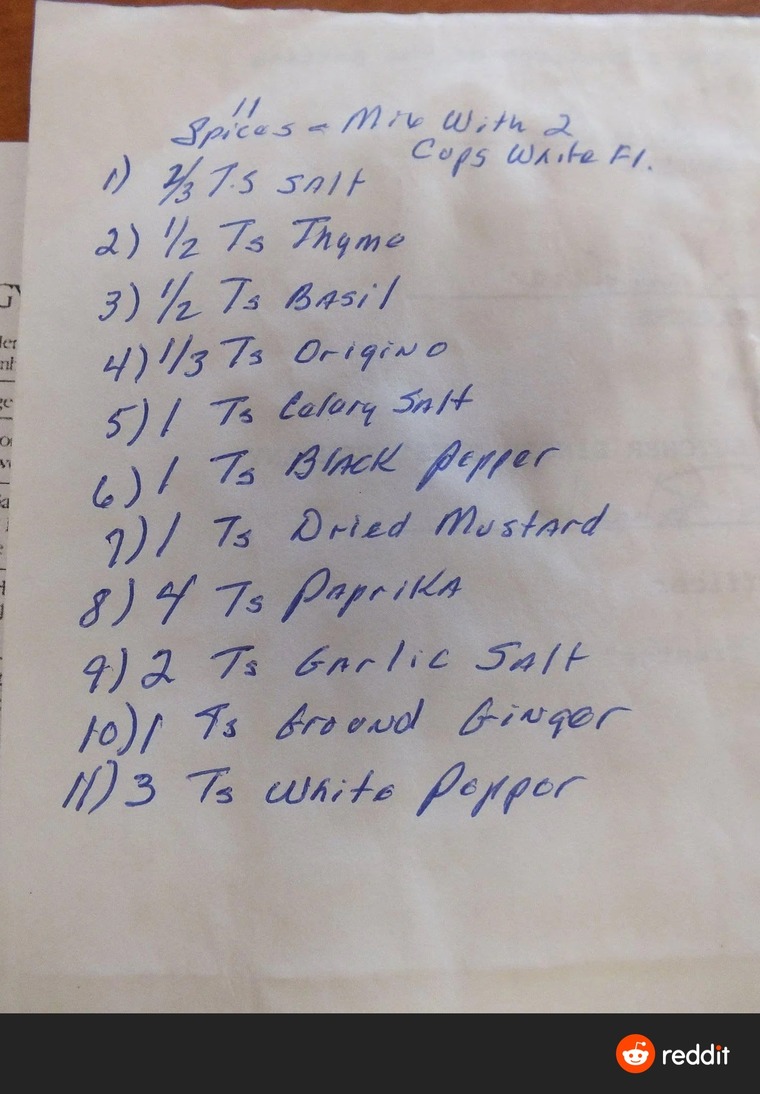 11
Spices - Mix With 2
Cups White Fl.
1) 2/3 T.S SAlt
2) 1/2 Ts Thyme
3) 1/2 Ts BAsil
4) 1/3 Ts OrigiNo
5) 1 Ts Celery SAlt
6) 1 Ts BlAcK Pepper
7) 1 Ts Dried MustArd
8) 4 Ts PApriKA
9) 2 Ts GArlic SAlt
10) 1 Ts Ground GiNger
11) 3 Ts White Pepper
reddit